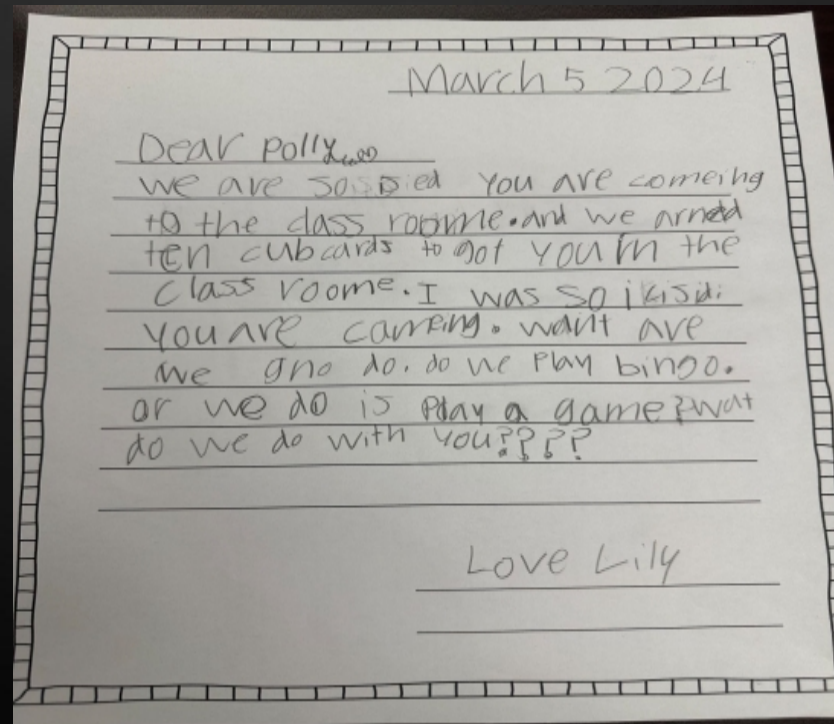 March 5 2024
Dear polly
we are so you are comeing
to the class roome. and we arned
ten cubcards to got you in the
class roome. I was so
you are cameing. want are
we gno do. do we play bingo.
or we do is play a game? wat
do we do with you????
Love Lily